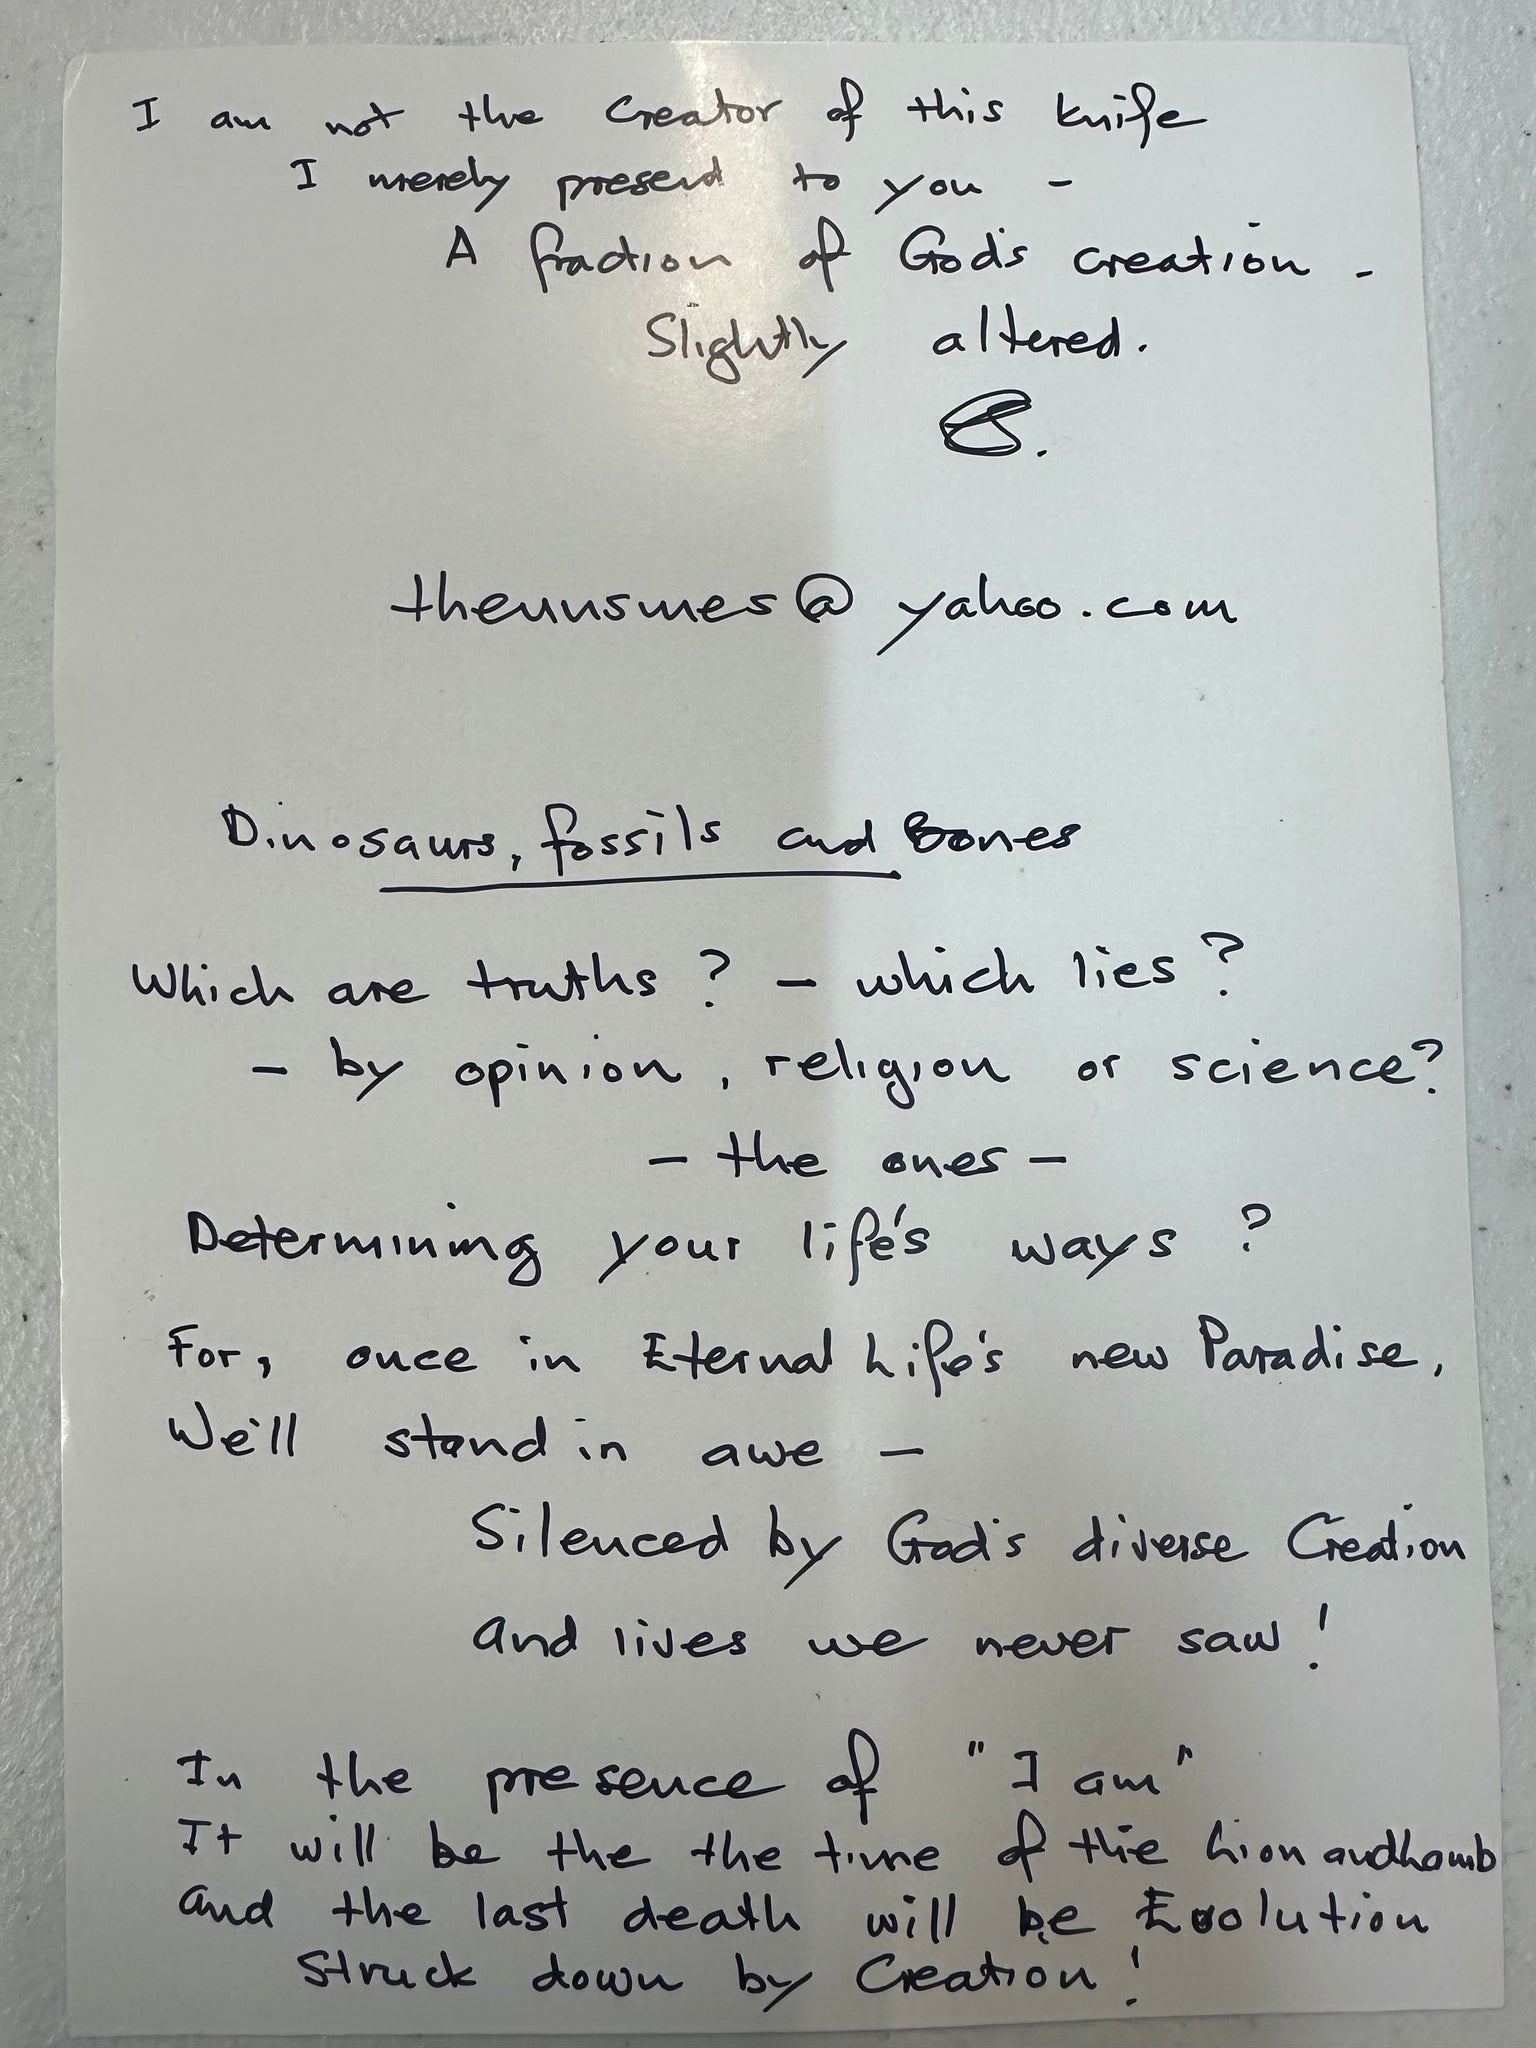 I am not the Creator of this knife
I merely present to you -
A fraction of God's creation -
Slightly altered.
theunsmes@yahoo.com
Dinosaurs, fossils and Bones
Which are truths? - which lies?
- by opinion, religion or science?
- the ones -
Determining your life's ways?
For, once in Eternal Life's new Paradise,
We'll stand in awe -
Silenced by God's diverse Creation
and lives we never saw!
In the presence of "I am"
It will be the the time of the Lion and Lamb
and the last death will be Evolution
Struck down by Creation!